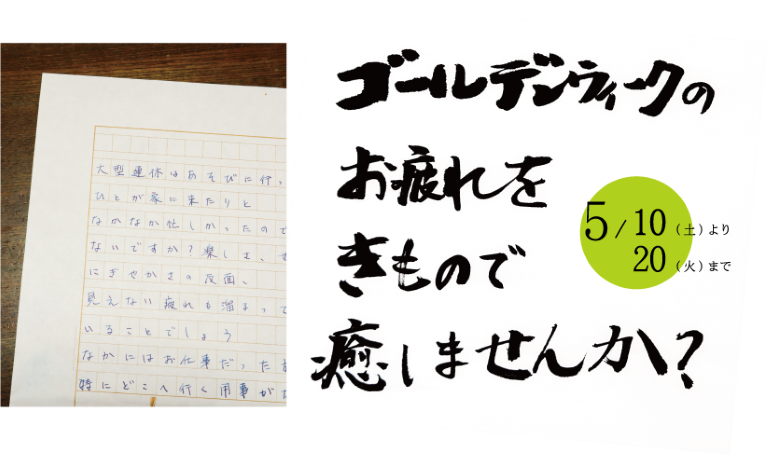 大型連休はあそびに行、
ひとが家に来たりと
なかなか忙しかったので
ないですか?楽しさ、
にぎやかさの反面、
見えない疲れも溜まって
いることでしょう
なかにはお仕事だった
特にどこへ行く用事が
ゴールデンウィークの
お疲れを
きもので
癒しませんか?
5/10(土)より
20(火)まで